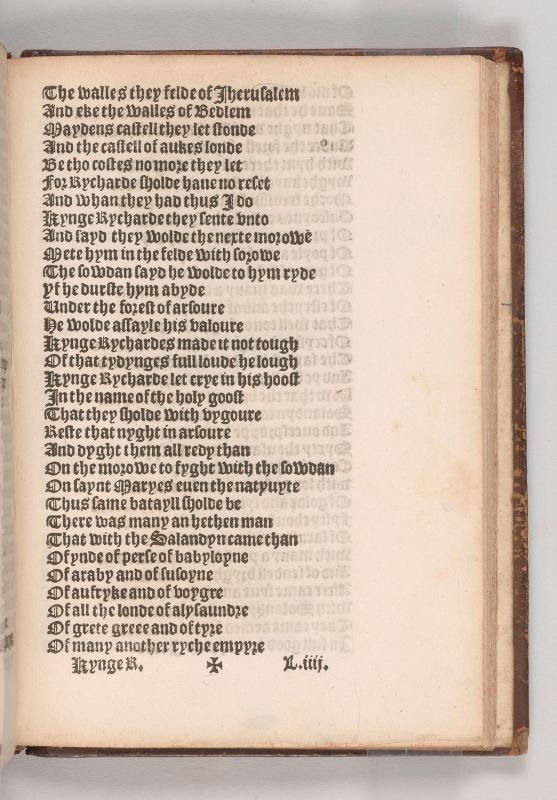 The walles they felde of Jherusalem
And eke the walles of Bedlem
Maydens castell they let stonde
And the castell of aukes londe
Be tho costes no more they let
For Rycharde sholde haue no reset
And whan they had thus I do
Kynge Rycharde they sente vnto
And sayd they wolde the nexte morowē
Mete hym in the felde with sorowe
The sowdan sayd he wolde to hym ryde
Yf he durste hym abyde
Under the forest of arsoure
He wolde assayle his valoure
Kynge Rychardes made it not tough
Of that tydynges full loude he lough
Kynge Rycharde let crye in his hoost
In the name of the holy goost
That they sholde with vygoure
Reste that nyght in arsoure
And dyght them all redy than
On the morowe to fyght with the sowdan
On saynt Maryes euen the natyuyte
Thus same batayll sholde be
There was many an hethen man
That with the Salandyn came than
Of ynde of perse of babyloyne
Of araby and of susoyne
Of aufryke and of voygre
Of all the londe of alysaundre
Of grete greee and of tyre
Of many another ryche empyre
Kynge R. ✠ L.iiij.